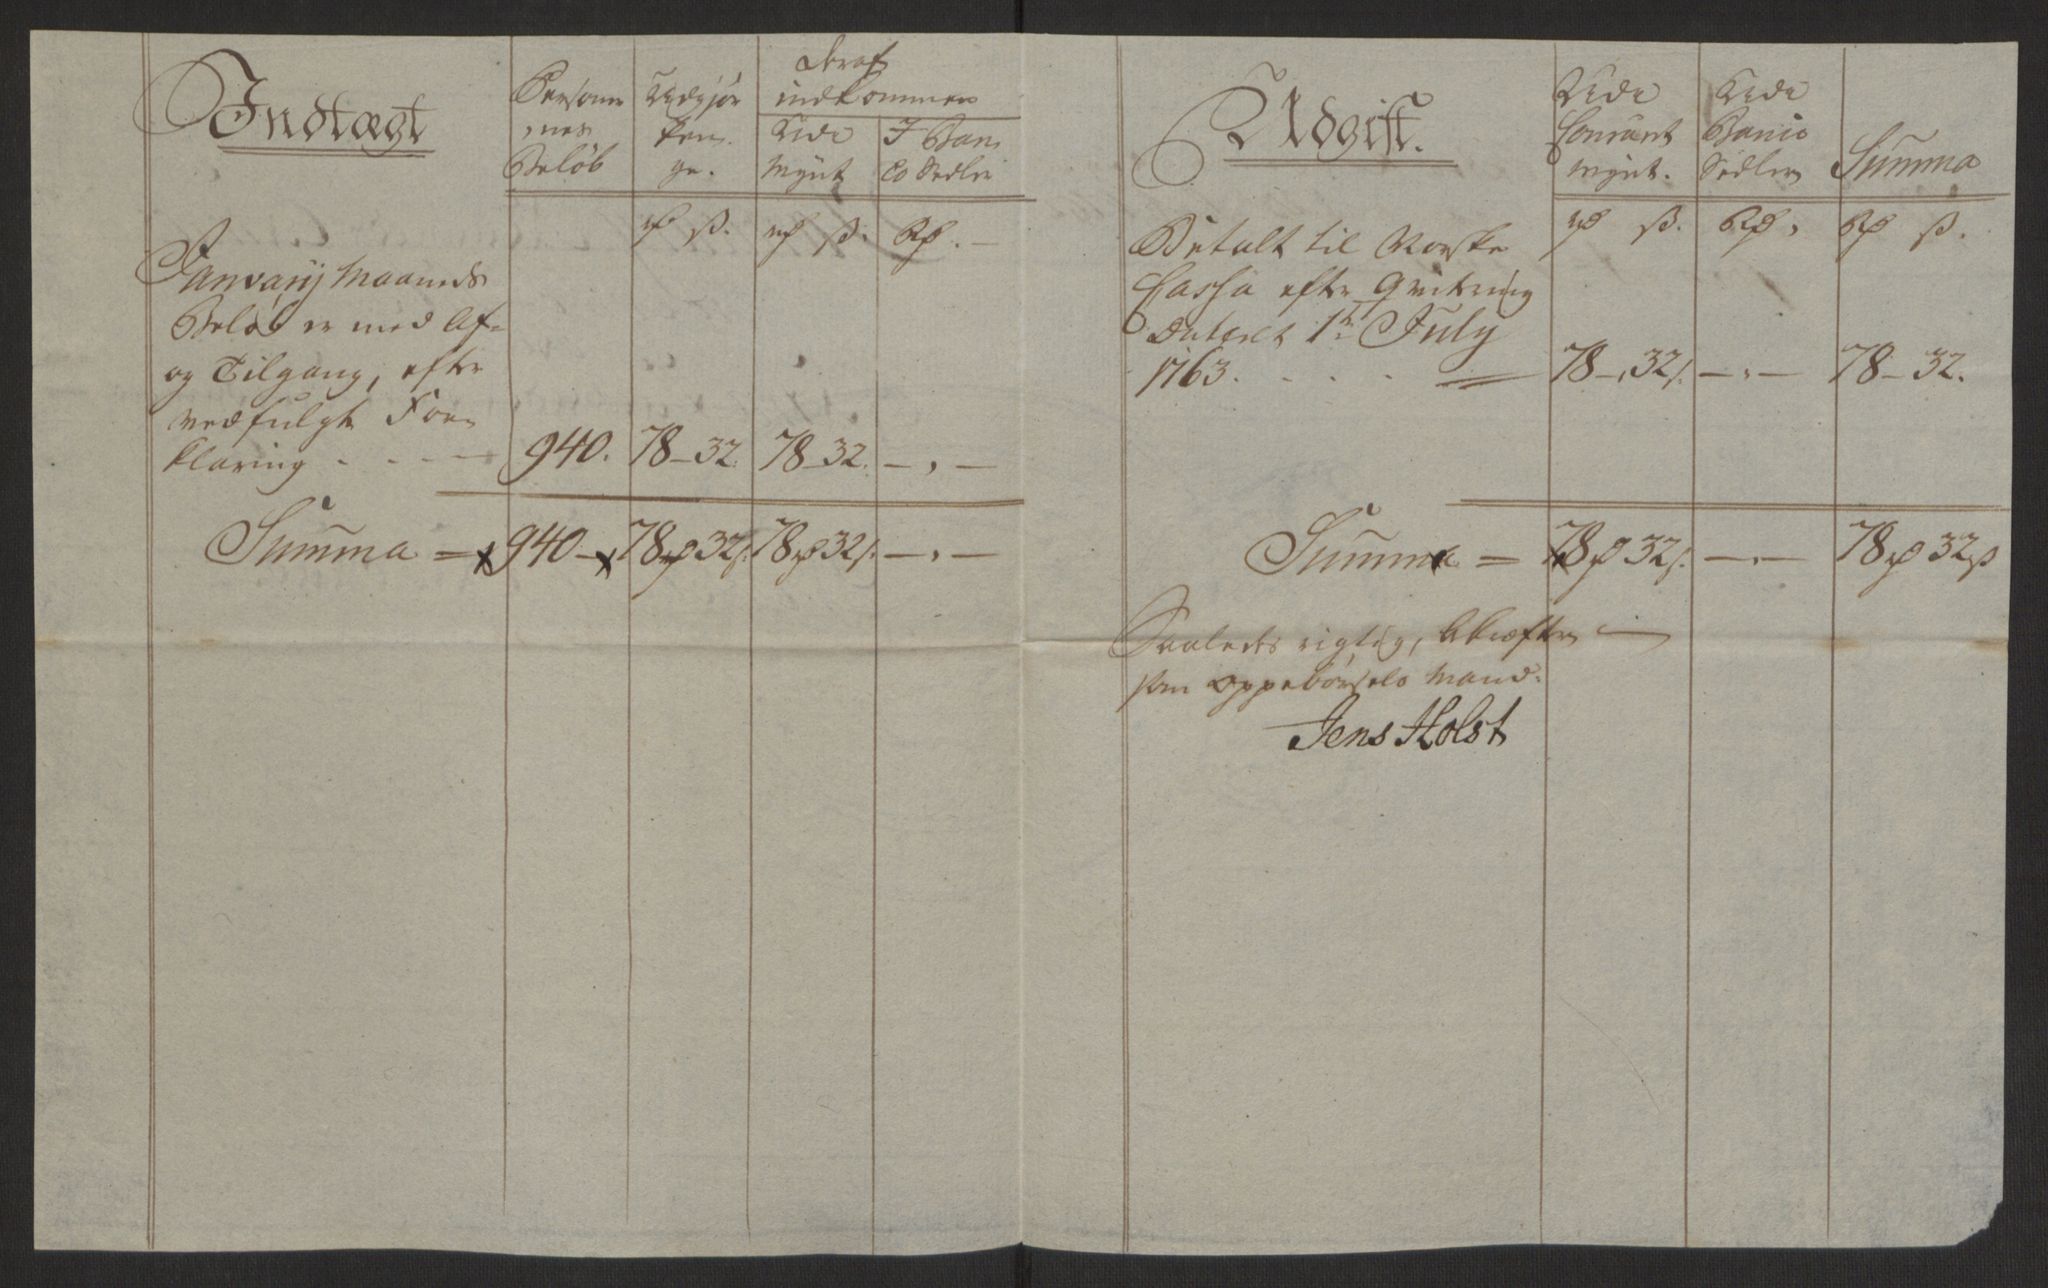 Indtægt
Personer
nes
Beløb
Udgiør
Pen-
ge.
deraf
indkommen
Rede
Mynt
I Ban
co Sedler
rd ß.
rd ß.
Rd.
Januarij Maaneds
Beløb er med Af-
og Tilgang, efter
vedfulgte For-
klaring - - - -
940.
78 - 32.
78 - 32.
- , -
Summa =
940 -
78 rd 32 ß.
78 rd 32 ß.
- , -
Udgift.
Rede
Courant
Mynt.
Rede
Banco
Sedler
Summa
rd ß.
Rd,
Rd ß.
Betalt til Norske
Cassa efter Qvitering
dateret 1te July
1763. - - -
78 - 32 ß.
- , -
78 - 32.
Summa =
78 rd 32 ß.
- , -
78 rd 32 ß
Saaledes rigtig, bekræfter
som Oppebørsels Mand.
Jens Holst